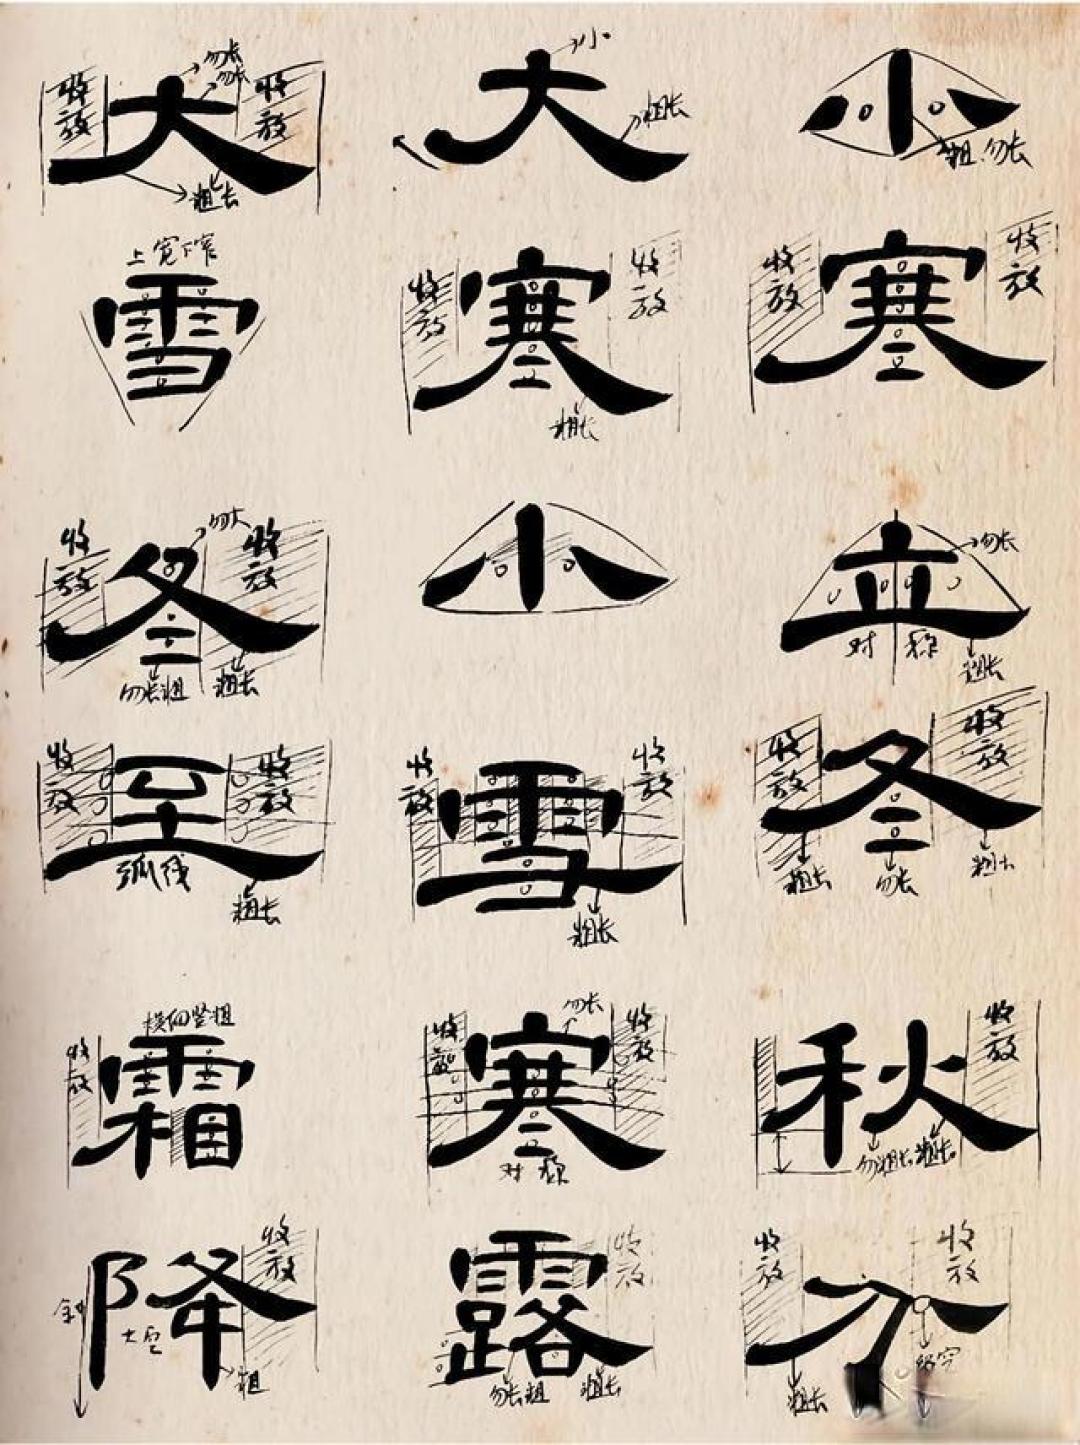 小
粗 勿长
寒
收放
收放
立
勿长
对称
冬
收放
收放
粗长
勿长
粗长
秋
收放
勿粗长
粗长
分
收放
收放
粗长
大
小
粗长
寒
收放
收放
粗长
小
雪
收放
收放
粗长
寒
勿长
收放
收放
对称
露
收放
勿长粗
粗长
大
勿长
勿长
收放
收放
粗长
雪
上宽下窄
冬
勿大
收放
收放
勿长粗
粗长
至
收放
收放
弧线
粗长
霜
横细竖粗
收放
降
收放
粗